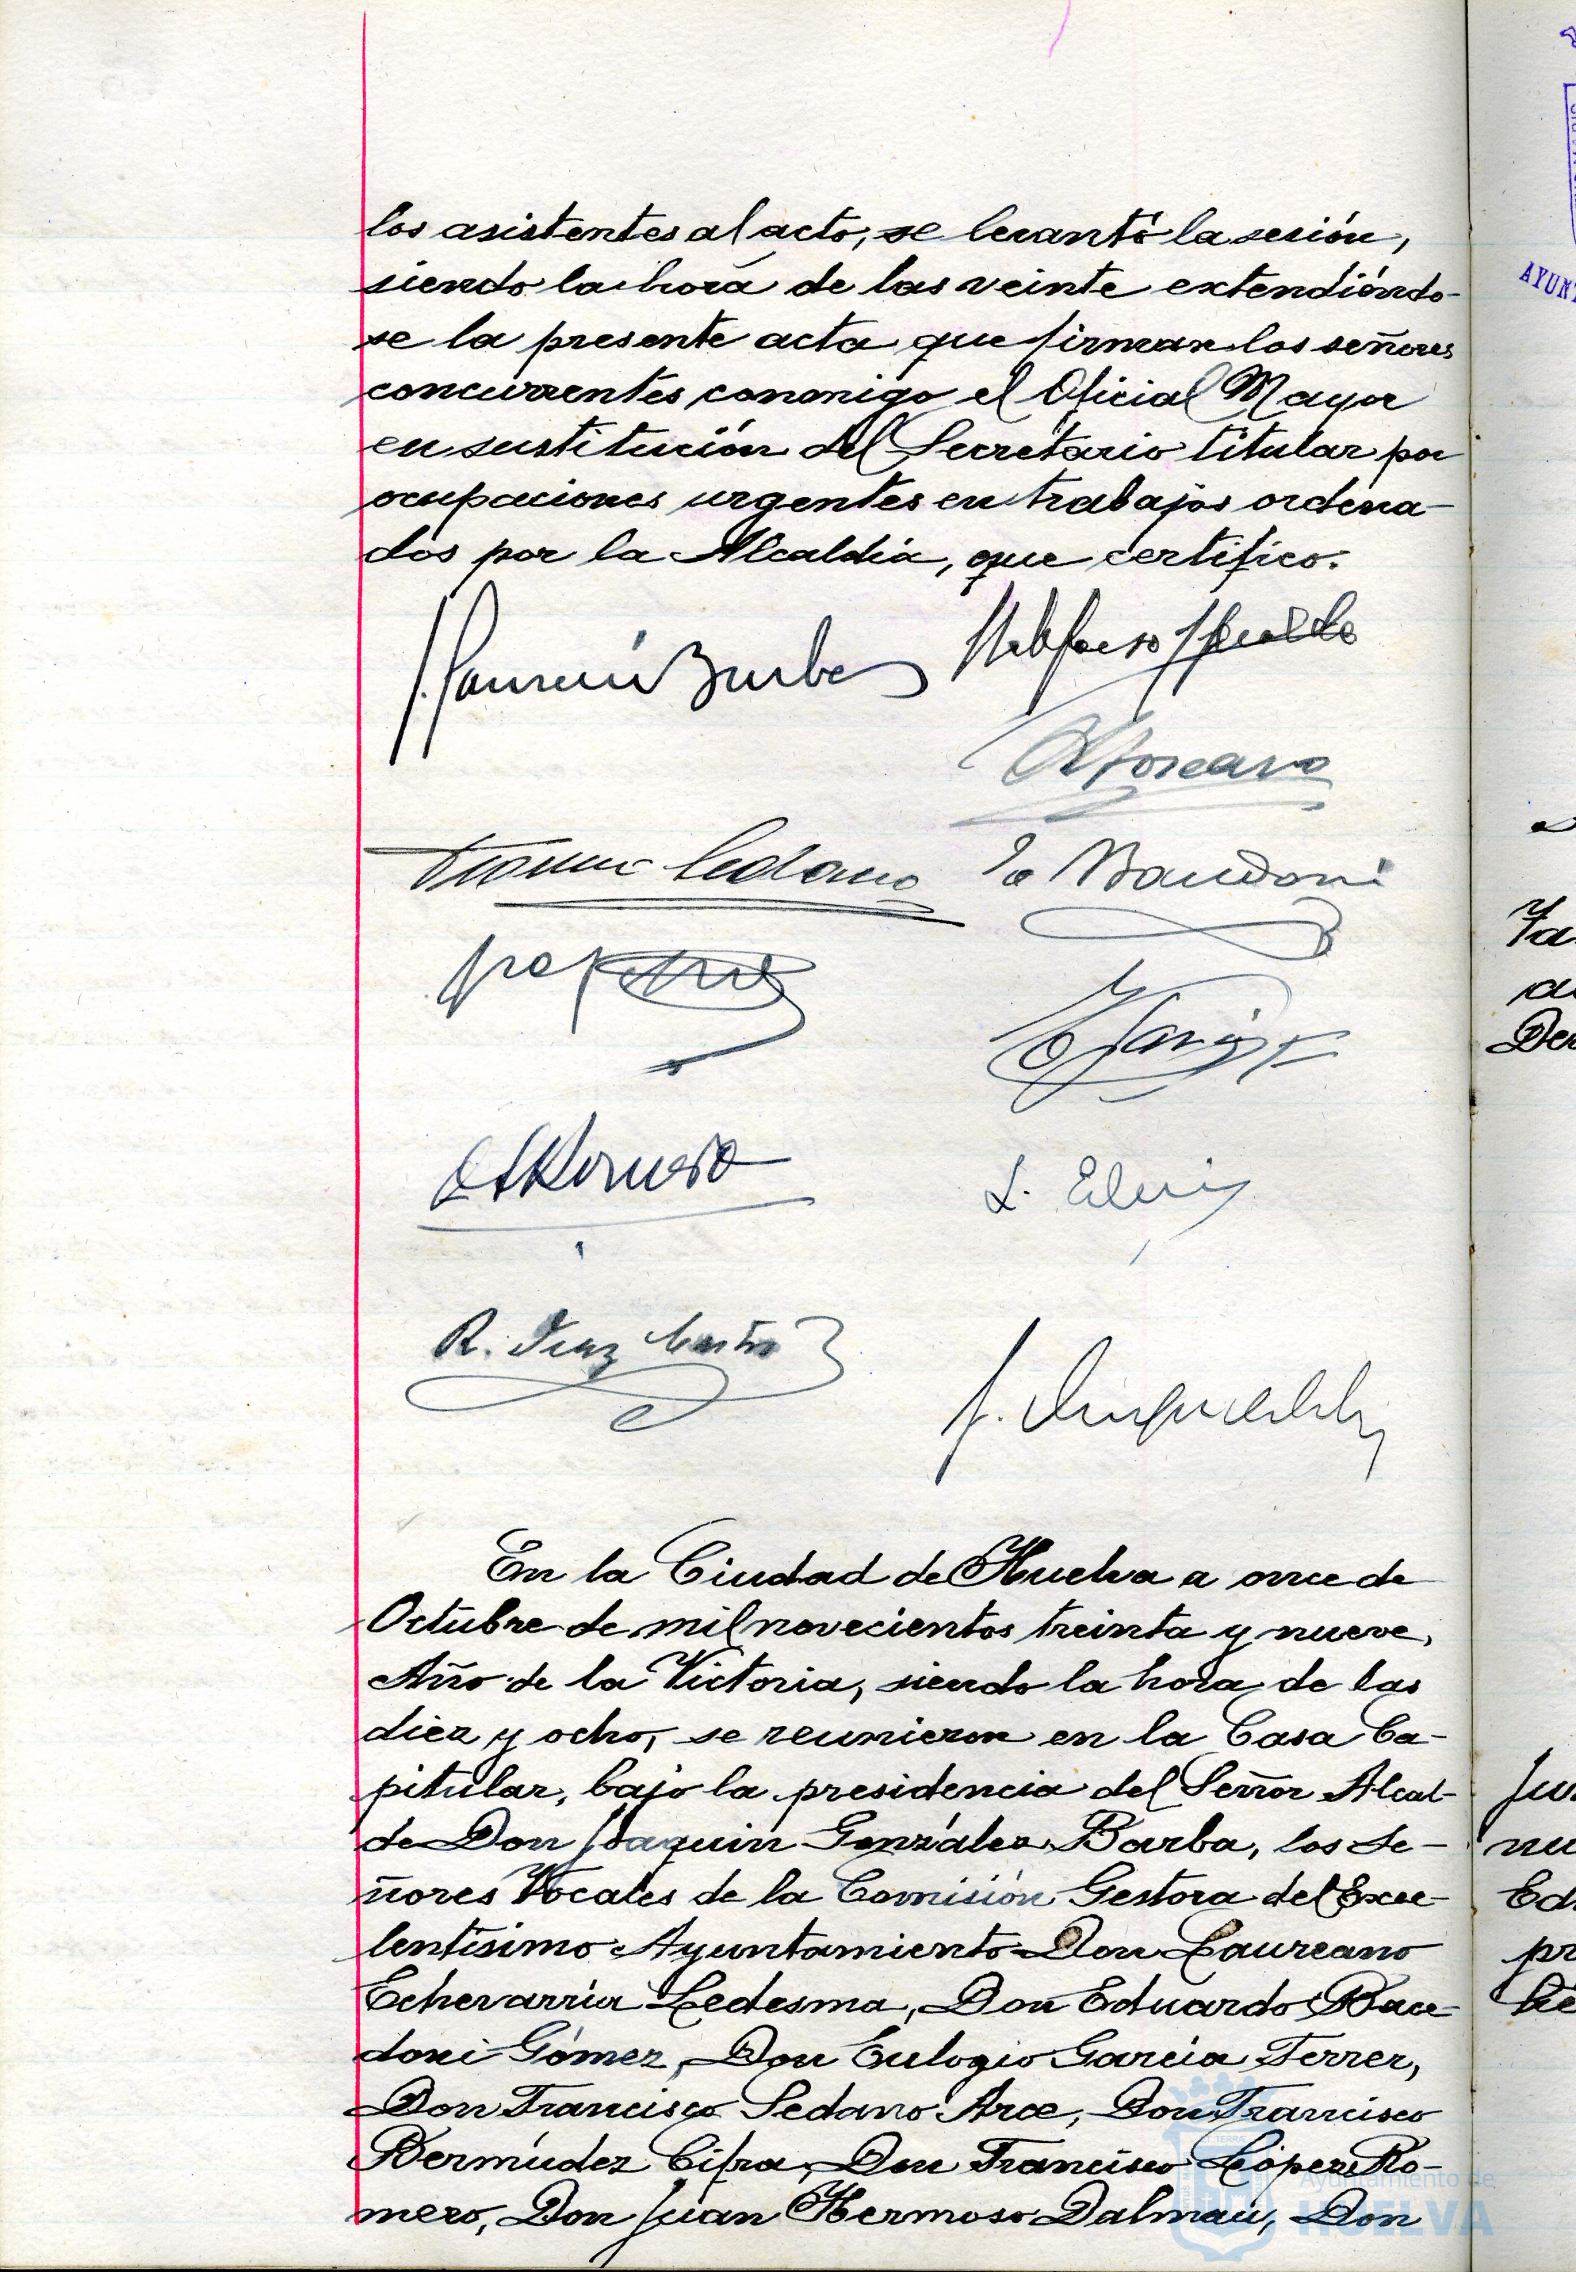 los asistentes al acto, se levantó la sesión,
siendo la hora de las veinte extendiéndo-
se la presente acta que firman los señores
concurrentes conmigo el Oficial Mayor
en sustitución del Secretario titular por
ocupaciones urgentes en trabajos ordena-
dos por la Alcaldia, que certifico.
Sedano
E. Bacedoni
R. Diaz
En la Ciudad de Huelva a once de
Octubre de mil novecientos treinta y nueve,
Año de la Victoria, siendo la hora de las
diez y ocho, se reunieron en la Casa Ca-
pitular, bajo la presidencia del Señor Alcal-
de Don Joaquin González Barba, los Se-
ñores Vocales de la Comisión Gestora del Exce-
lentisimo Ayuntamiento Don Laureano
Echevarria Ledesma, Don Eduardo Bace-
doni Gómez, Don Eulogio Garcia Ferrer,
Don Francisco Sedano Arce, Don Francisco
Bermúdez Cifra, Don Francisco López Ro-
mero, Don Juan Hermoso Dalmau, Don
Ayuntamiento de
HUELVA